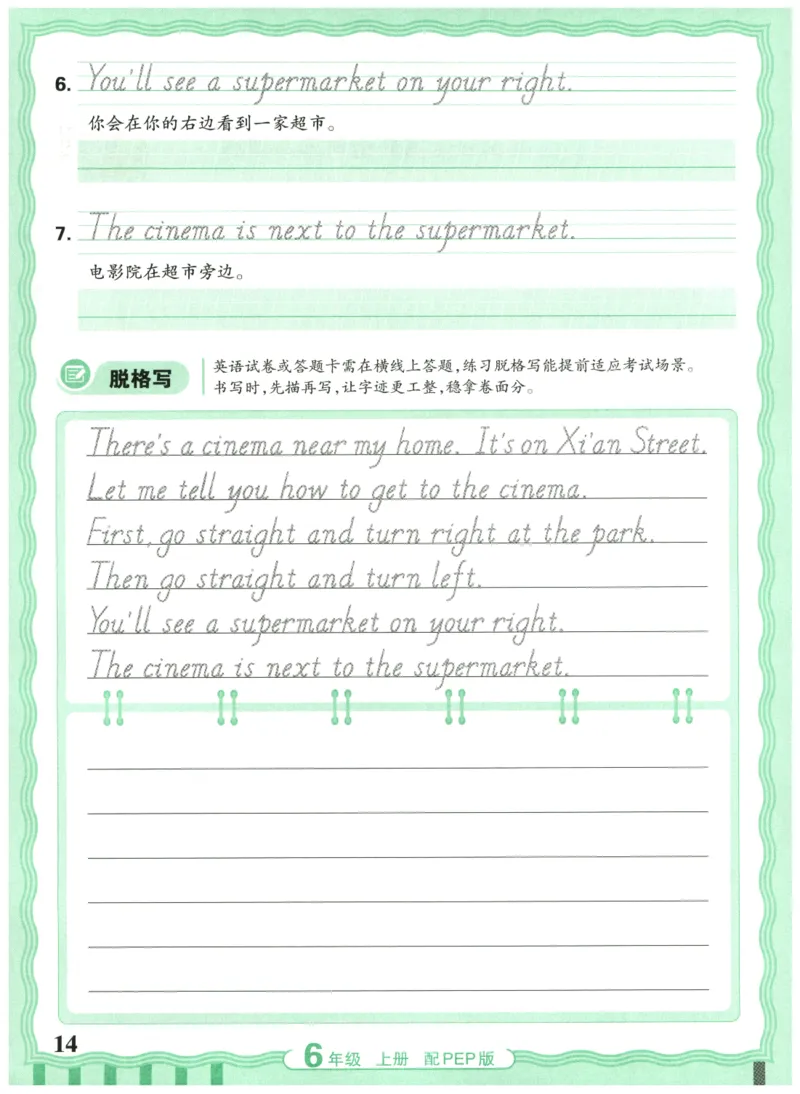 6. You'll see a supermarket on your right.
你会在你的右边看到一家超市。
7. The cinema is next to the supermarket.
电影院在超市旁边。
脱格写
英语试卷或答题卡需在横线上答题,练习脱格写能提前适应考试场景。
书写时,先描再写,让字迹更工整,稳拿卷面分。
There's a cinema near my home. It's on Xi'an Street.
Let me tell you how to get to the cinema.
First, go straight and turn right at the park.
Then go straight and turn left.
You'll see a supermarket on your right.
The cinema is next to the supermarket.
14
6年级 上册 配PEP版